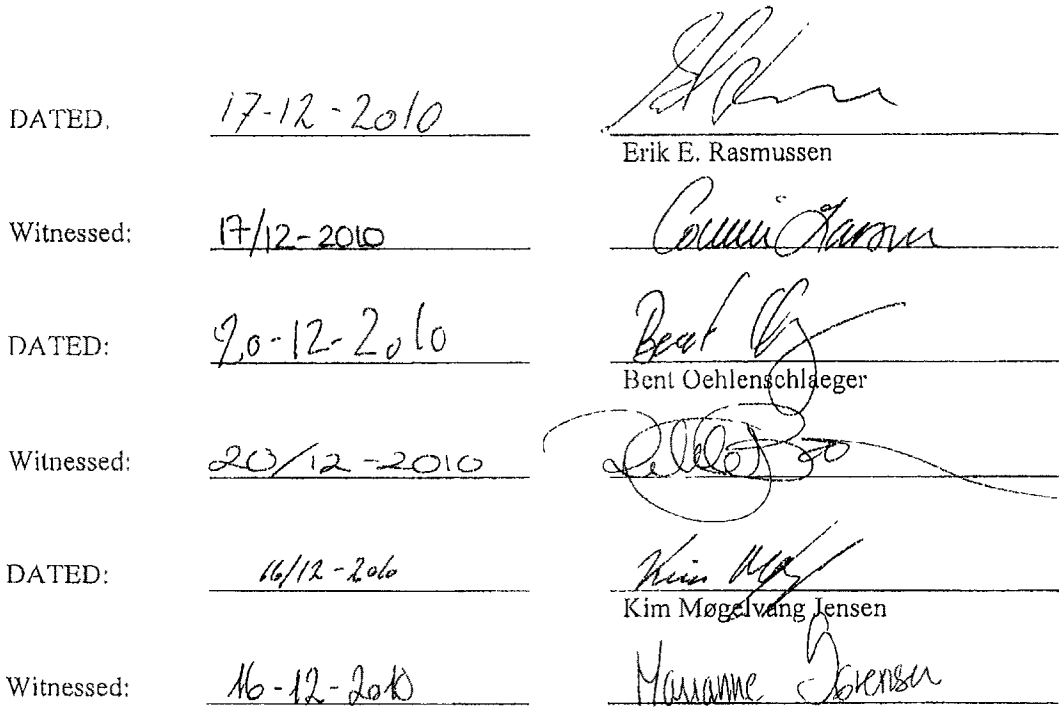 DATED. 17-12-2010
Erik E. Rasmussen
Witnessed: 17/12-2010 Connie Larsen
DATED: 20-12-2010 Bent
Bent Oehlenschlaeger
Witnessed: 20/12-2010
DATED: 16/12-2010 Kim
Kim Møgelvang Jensen
Witnessed: 16-12-2010 Marianne Sørensen